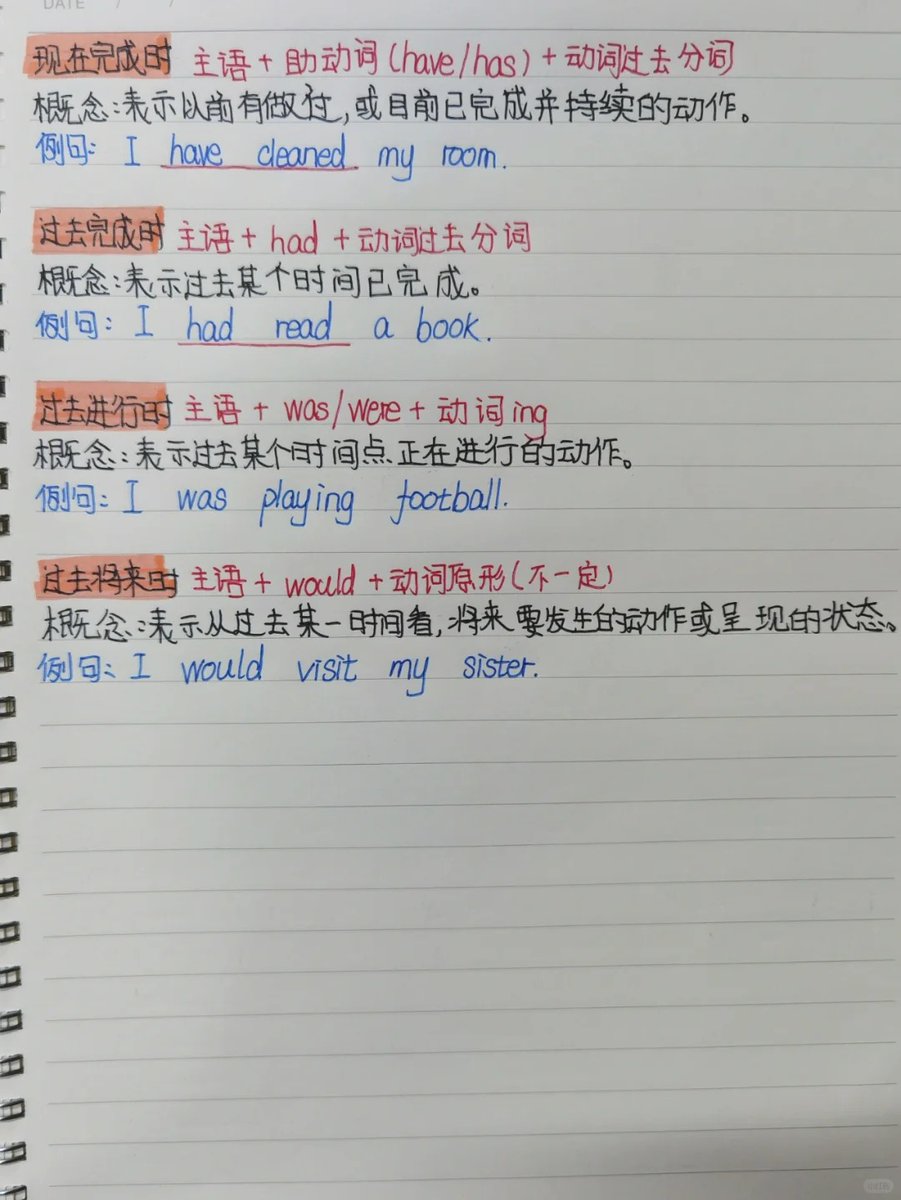 DATE / /
现在完成时 主语 + 助动词 (have/has) + 动词过去分词
概念:表示以前有做过,或目前已完成并持续的动作。
例句: I have cleaned my room.
过去完成时 主语 + had + 动词过去分词
概念:表示过去某个时间已完成。
例句: I had read a book.
过去进行时 主语 + was/were + 动词ing
概念:表示过去某个时间点正在进行的动作。
例句: I was playing football.
过去将来时 主语 + would + 动词原形(不一定)
概念:表示从过去某一时间看,将来要发生的动作或呈现的状态。
例句: I would visit my sister.